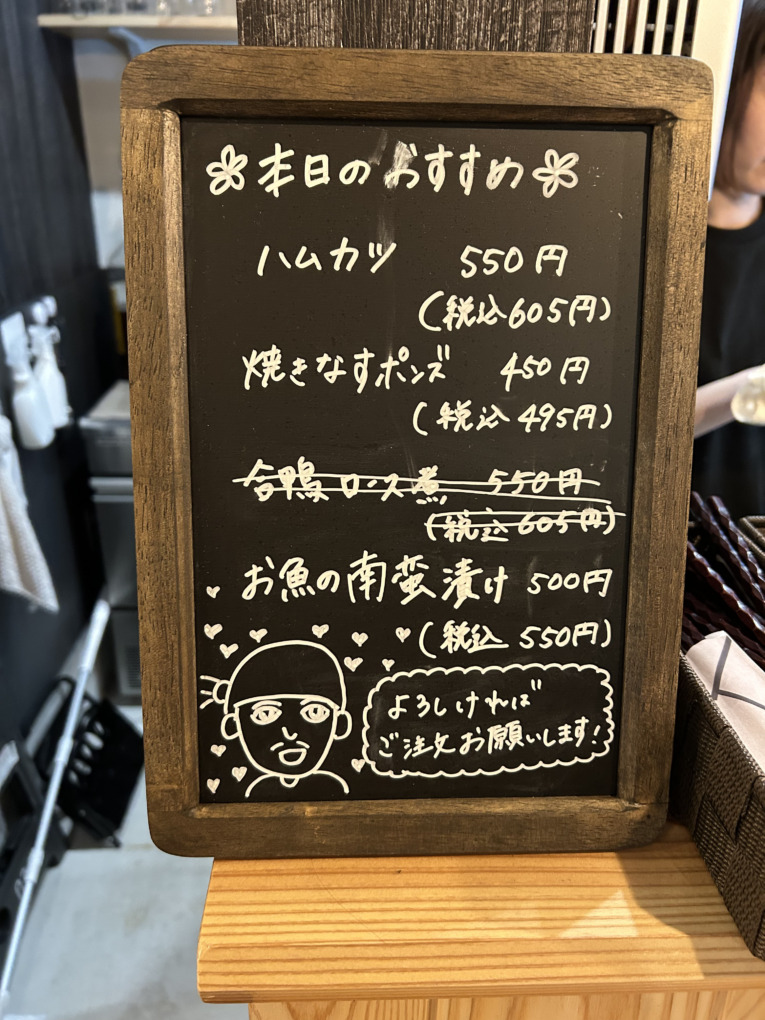 本日のおすすめ
ハムカツ 550円
(税込605円)
焼きなすポンズ 450円
(税込 495円)
合鴨ロース煮 550円
(税込 605円)
お魚の南蛮漬け 500円
(税込 550円)
よろしければ
ご注文お願いします!